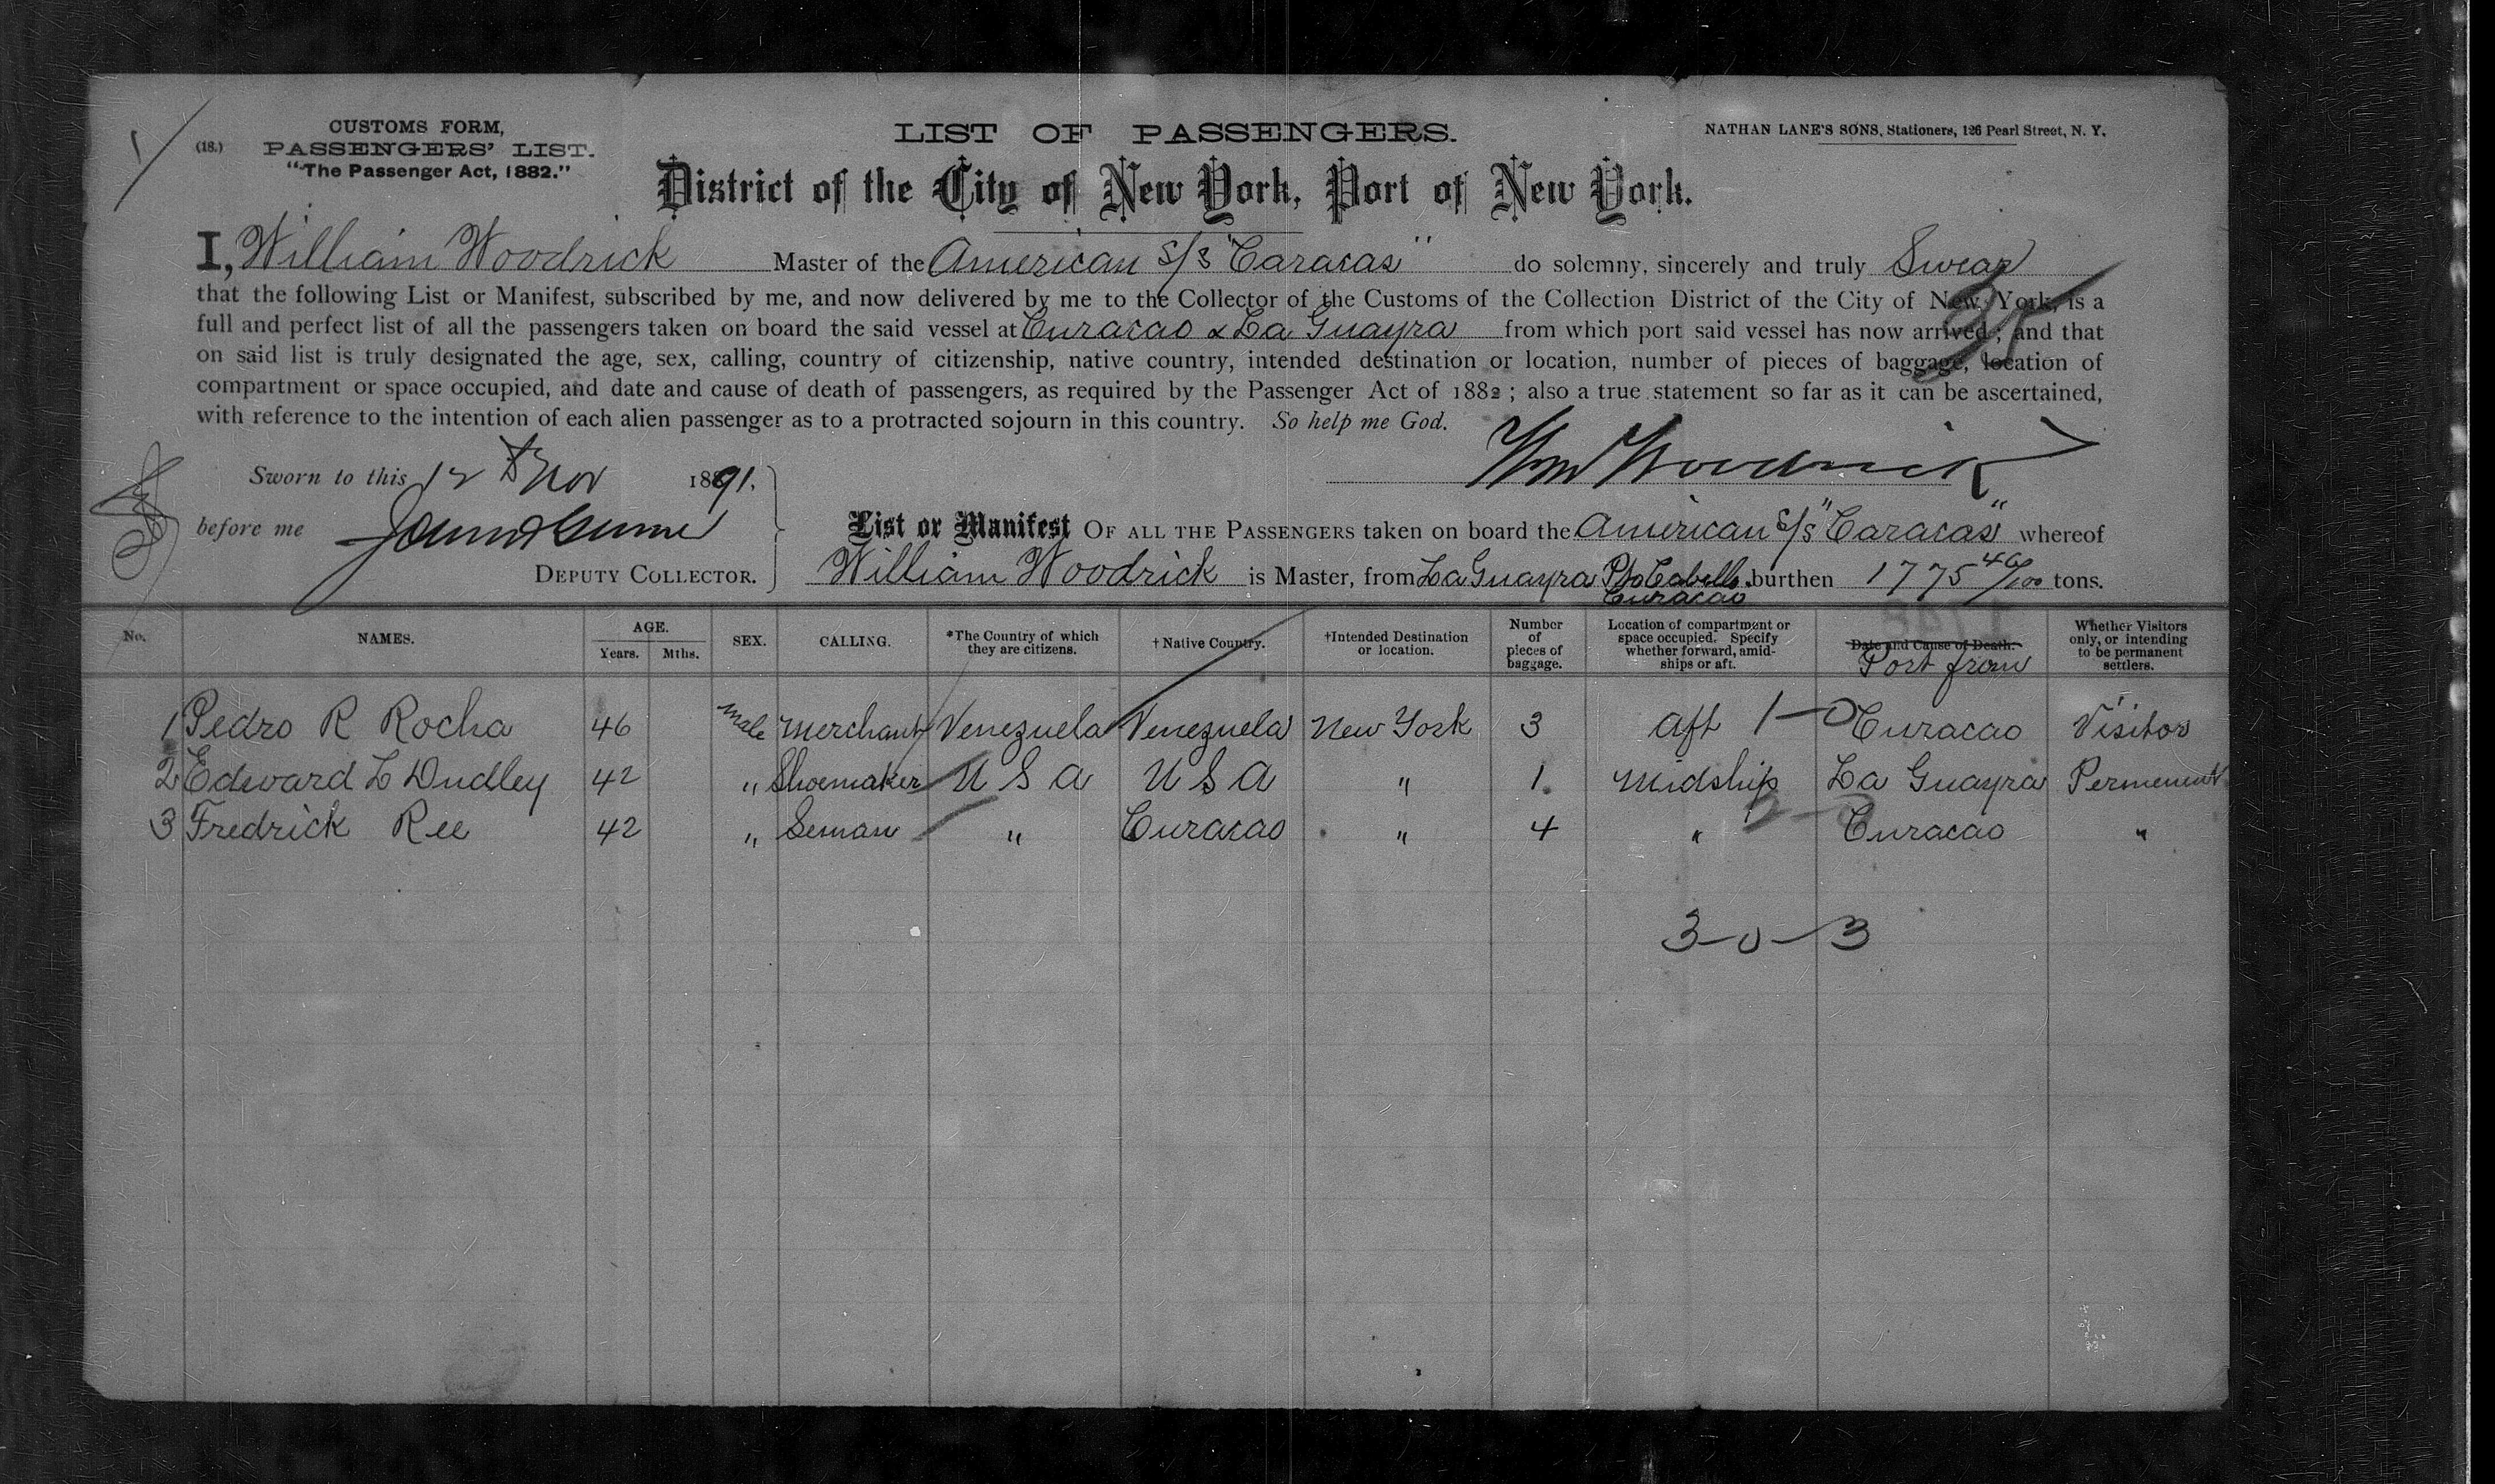 1
(18.)
CUSTOMS FORM,
PASSENGERS' LIST.
"The Passenger Act, 1882."
LIST OF PASSENGERS.
NATHAN LANE'S SONS, Stationers, 126 Pearl Street, N. Y.
District of the City of New York, Port of New York.
I, William Woodrick Master of the American S/S "Caracas" do solemny, sincerely and truly Swear
that the following List or Manifest, subscribed by me, and now delivered by me to the Collector of the Customs of the Collection District of the City of New York, is a
full and perfect list of all the passengers taken on board the said vessel at Curacao & La Guayra from which port said vessel has now arrived; and that
on said list is truly designated the age, sex, calling, country of citizenship, native country, intended destination or location, number of pieces of baggage, location of
compartment or space occupied, and date and cause of death of passengers, as required by the Passenger Act of 1882; also a true statement so far as it can be ascertained,
with reference to the intention of each alien passenger as to a protracted sojourn in this country. So help me God.
Wm Woodrick
Sworn to this 12 Nov 1891.
before me
DEPUTY COLLECTOR.
List or Manifest OF ALL THE PASSENGERS taken on board the American S/S "Caracas" whereof
William Woodrick is Master, from La Guayra Pto Cabello Curacao burthen 1775 46/100 tons.
No. NAMES. AGE. Years. Mths. SEX. CALLING. *The Country of which they are citizens. †Native Country. †Intended Destination or location. Number of pieces of baggage. Location of compartment or space occupied. Specify whether forward, amidships or aft. Date and Cause of Death. Port from Whether Visitors only, or intending to be permanent settlers.
1 Pedro R Rocha 46 male Merchant Venezuela Venezuela New York 3 Aft 1-0 Curacao Visitor
2 Edward L Dudley 42 " Shoemaker U S A U S A " 1. Midship La Guayra Permenent
3 Fredrick Ree 42 " Seman " Curacao " 4 " Curacao "
3-0-3